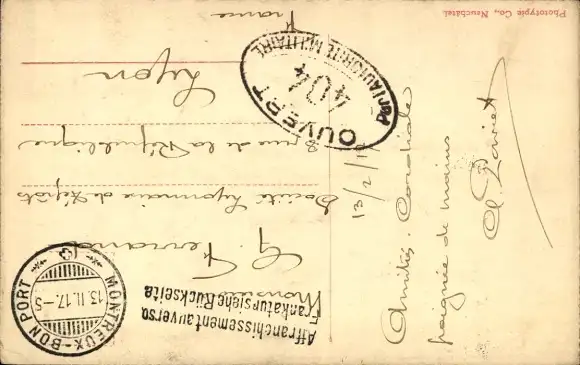 Phototypie Co., Neuchâtel
Affranchissement au verso.
Frankatur siehe Rückseite
MONTREUX-BON PORT
13.II.17.-5
OUVERT
404
Par l'AUTORITÉ MILITAIRE
Monsieur
G. Ferrand
Société Lyonnaise de Dépôts
8 rue de la République
Lyon
France
13/2/17
Amitiés. Cordiale
poignée de mains